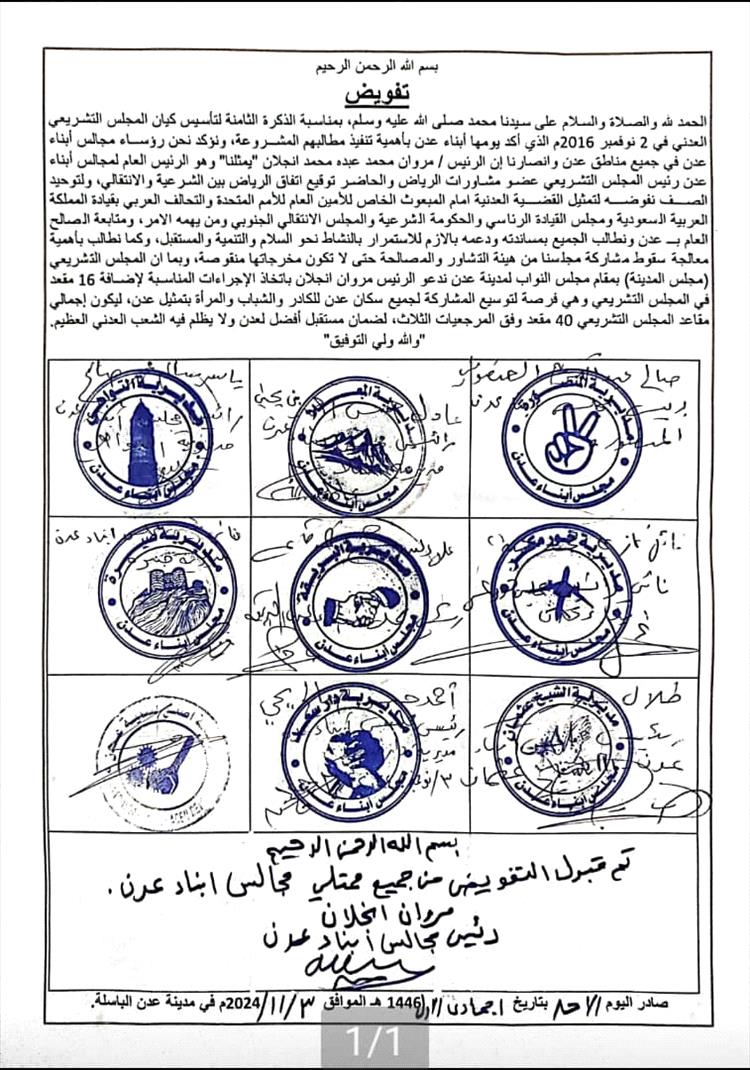 بسم الله الرحمن الرحيم
تفويض
الحمد لله والصلاة والسلام على سيدنا محمد صلى الله عليه وسلم، بمناسبة الذكرة الثامنة لتأسيس كيان المجلس التشريعي
العدني في 2 نوفمبر 2016م الذي أكد يومها أبناء عدن بأهمية تنفيذ مطالبهم المشروعة، ونؤكد نحن رؤساء مجالس أبناء
عدن في جميع مناطق عدن وانصارنا إن الرئيس / مروان محمد عبده محمد انجلان "يمثلنا" وهو الرئيس العام لمجالس أبناء
عدن رئيس المجلس التشريعي عضو مشاورات الرياض والحاضر توقيع اتفاق الرياض بين الشرعية والانتقالي، ولتوحيد
الصف نفوضه لتمثيل القضية العدنية امام المبعوث الخاص للأمين العام للأمم المتحدة والتحالف العربي بقيادة المملكة
العربية السعودية ومجلس القيادة الرئاسي والحكومة الشرعية والمجلس الانتقالي الجنوبي ومن يهمه الامر، ومتابعة الصالح
العام بـ عدن ونطالب الجميع بمساندته ودعمه بالازم للاستمرار بالنشاط نحو السلام والتنمية والمستقبل، وكما نطالب بأهمية
معالجة سقوط مشاركة مجلسنا من هيئة التشاور والمصالحة حتى لا تكون مخرجاتها منقوصة، وبما ان المجلس التشريعي
(مجلس المدينة) بمقام مجلس النواب لمدينة عدن ندعو الرئيس مروان انجلان باتخاذ الإجراءات المناسبة لإضافة 16 مقعد
في المجلس التشريعي وهي فرصة لتوسيع المشاركة لجميع سكان عدن للكادر والشباب والمرأة بتمثيل عدن، ليكون إجمالي
مقاعد المجلس التشريعي 40 مقعد وفق المرجعيات الثلاث، لضمان مستقبل أفضل لعدن ولا يظلم فيه الشعب العدني العظيم.
"والله ولي التوفيق"
مديرية المنصورة
مجلس أبناء عدن
مديرية المعلا
مجلس أبناء عدن
مديرية التواهي
مجلس أبناء عدن
مديرية خور مكسر
مجلس أبناء عدن
مديرية البريقة
مجلس أبناء عدن
مديرية صيرة
مجلس أبناء عدن
طلال
مديرية الشيخ عثمان
مجلس أبناء عدن
مديرية دار سعد
مجلس أبناء عدن
بسم الله الرحمن الرحيم
تم قبول التفويض من جميع ممثلي مجالس ابناء عدن.
مروان انجلان
رئيس مجالس ابناء عدن
صادر اليوم الاحد بتاريخ 1 جمادى الاول 1446 هـ الموافق 3/11/2024م في مدينة عدن الباسلة.
1/1